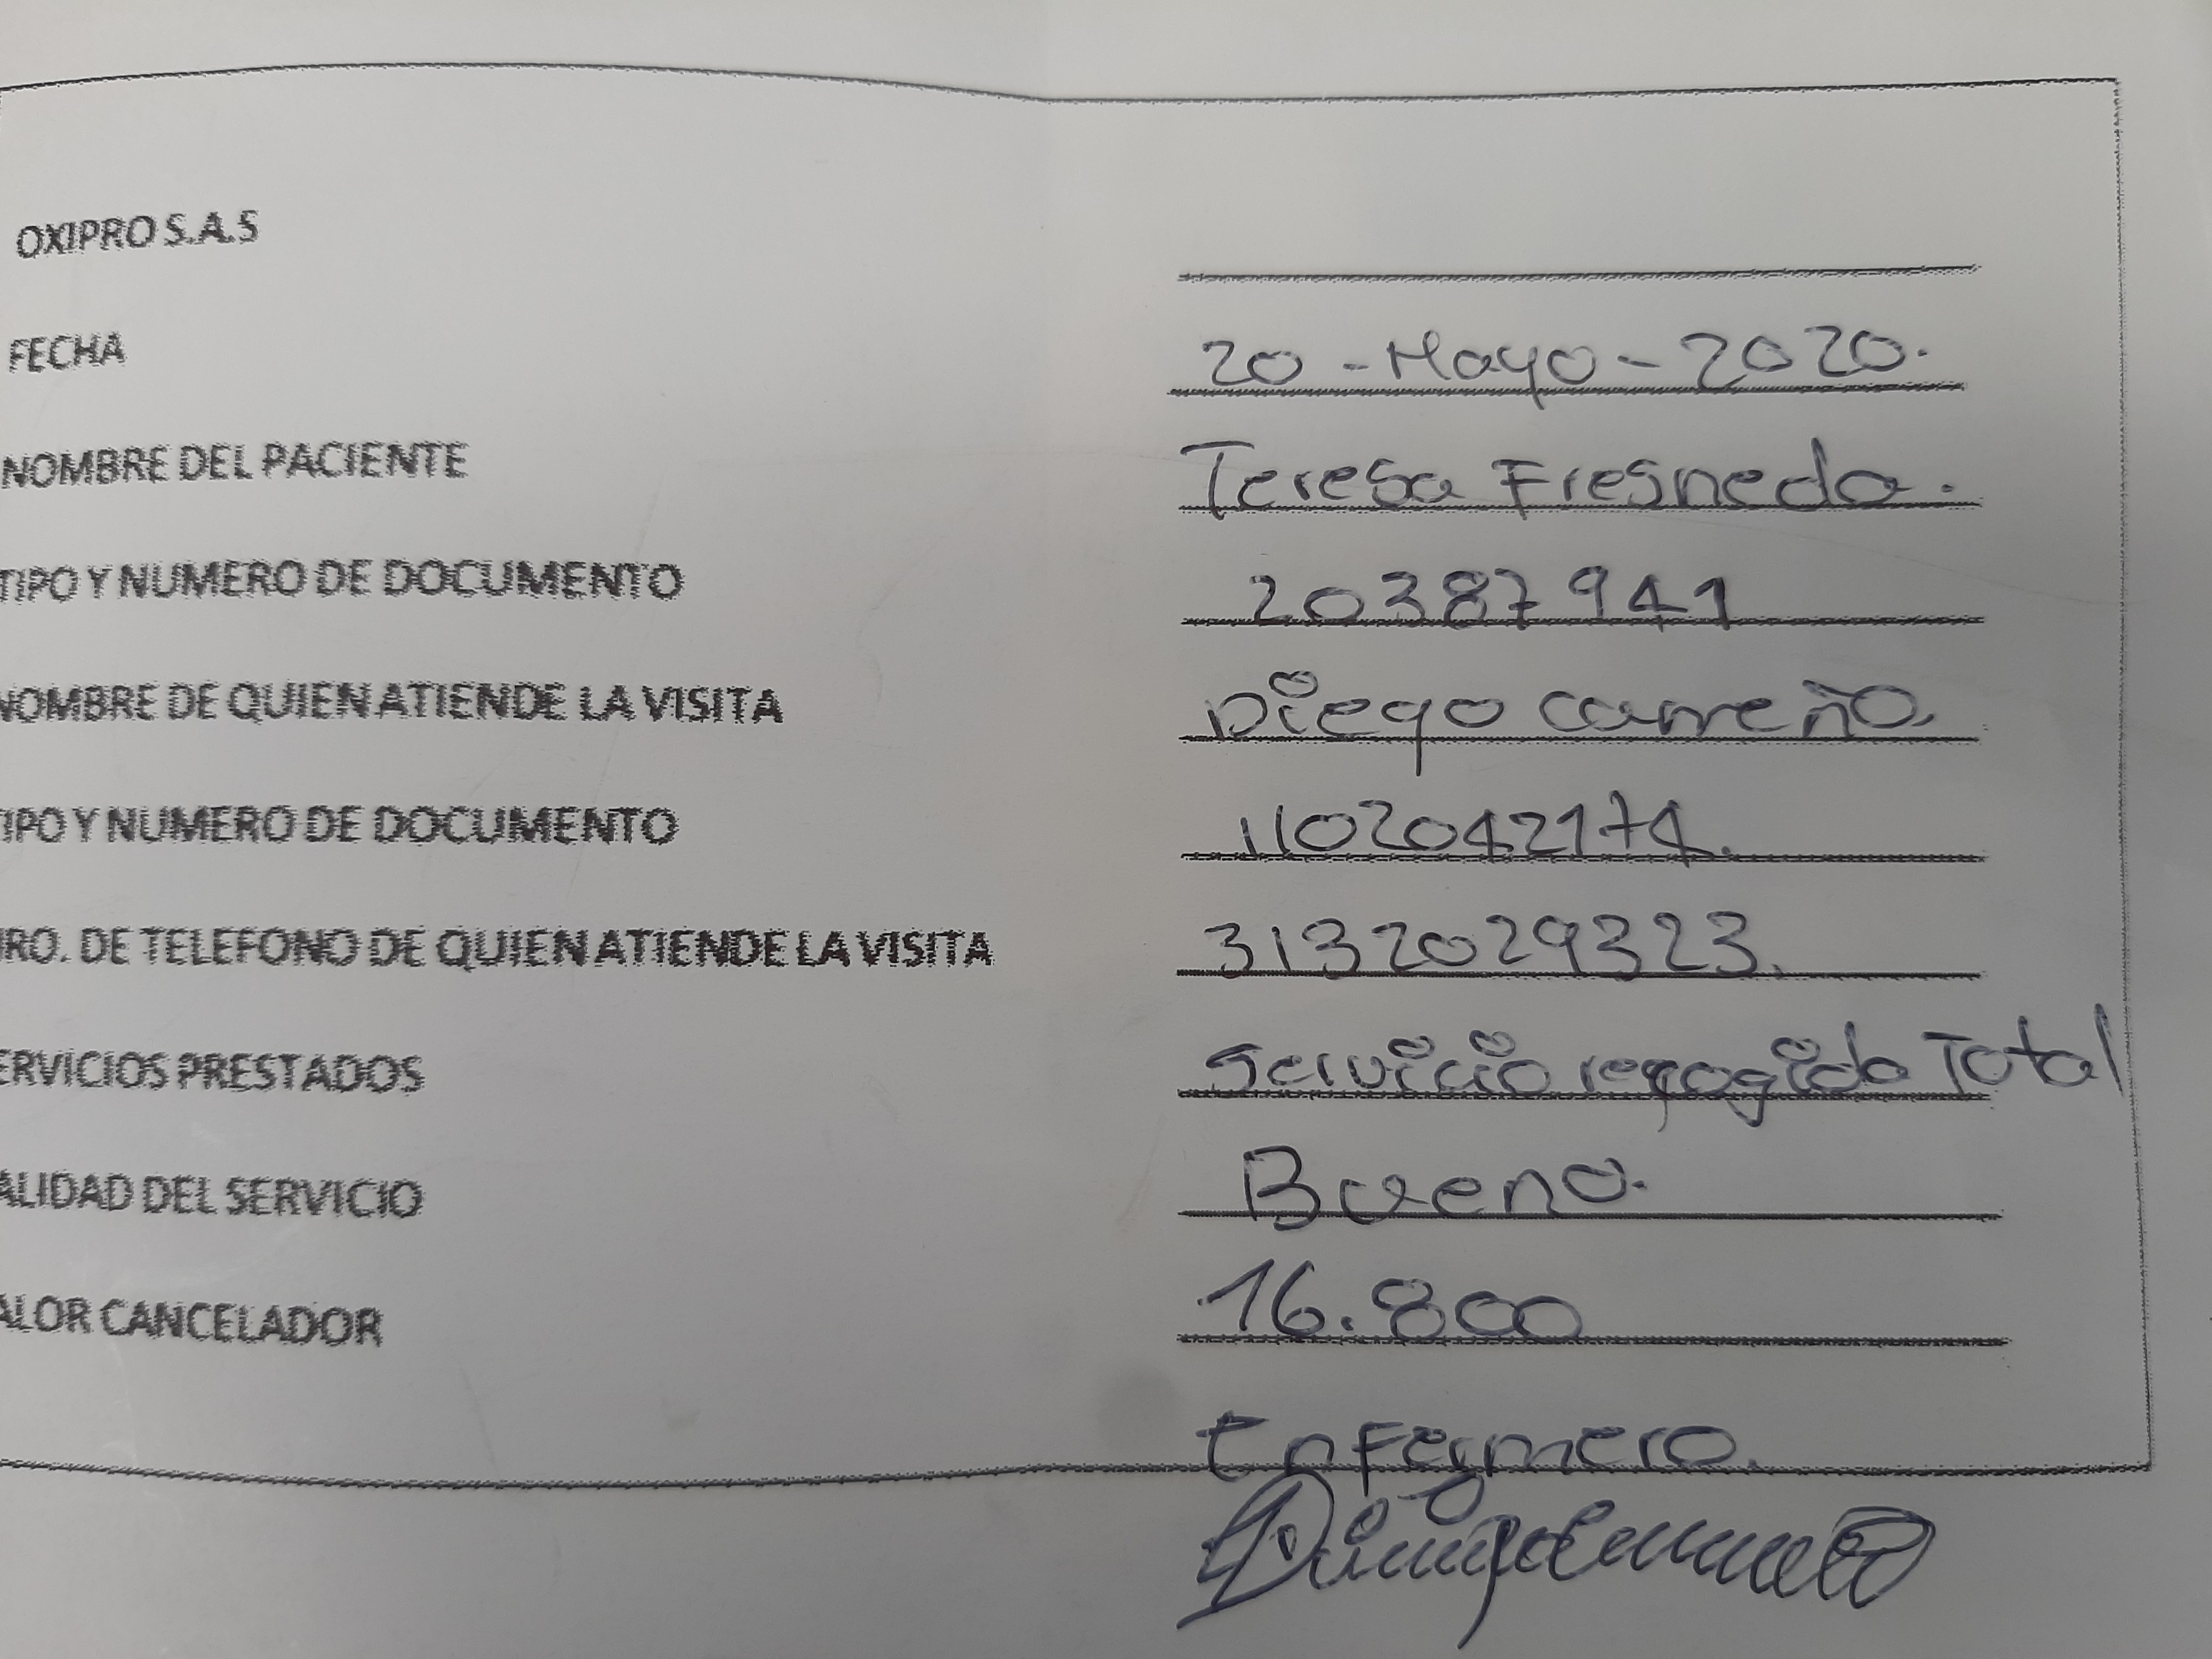 OXIPRO S.A.S
FECHA 20 - Mayo - 2020.
NOMBRE DEL PACIENTE Teresa Fresneda.
TIPO Y NUMERO DE DOCUMENTO 20387941
NOMBRE DE QUIEN ATIENDE LA VISITA Diego Carreño.
TIPO Y NUMERO DE DOCUMENTO 1102042174.
NRO. DE TELEFONO DE QUIEN ATIENDE LA VISITA 3132029323.
ERVICIOS PRESTADOS Servicio recogida Total
ALIDAD DEL SERVICIO Bueno.
ALOR CANCELADOR 16.800
Enfermero.